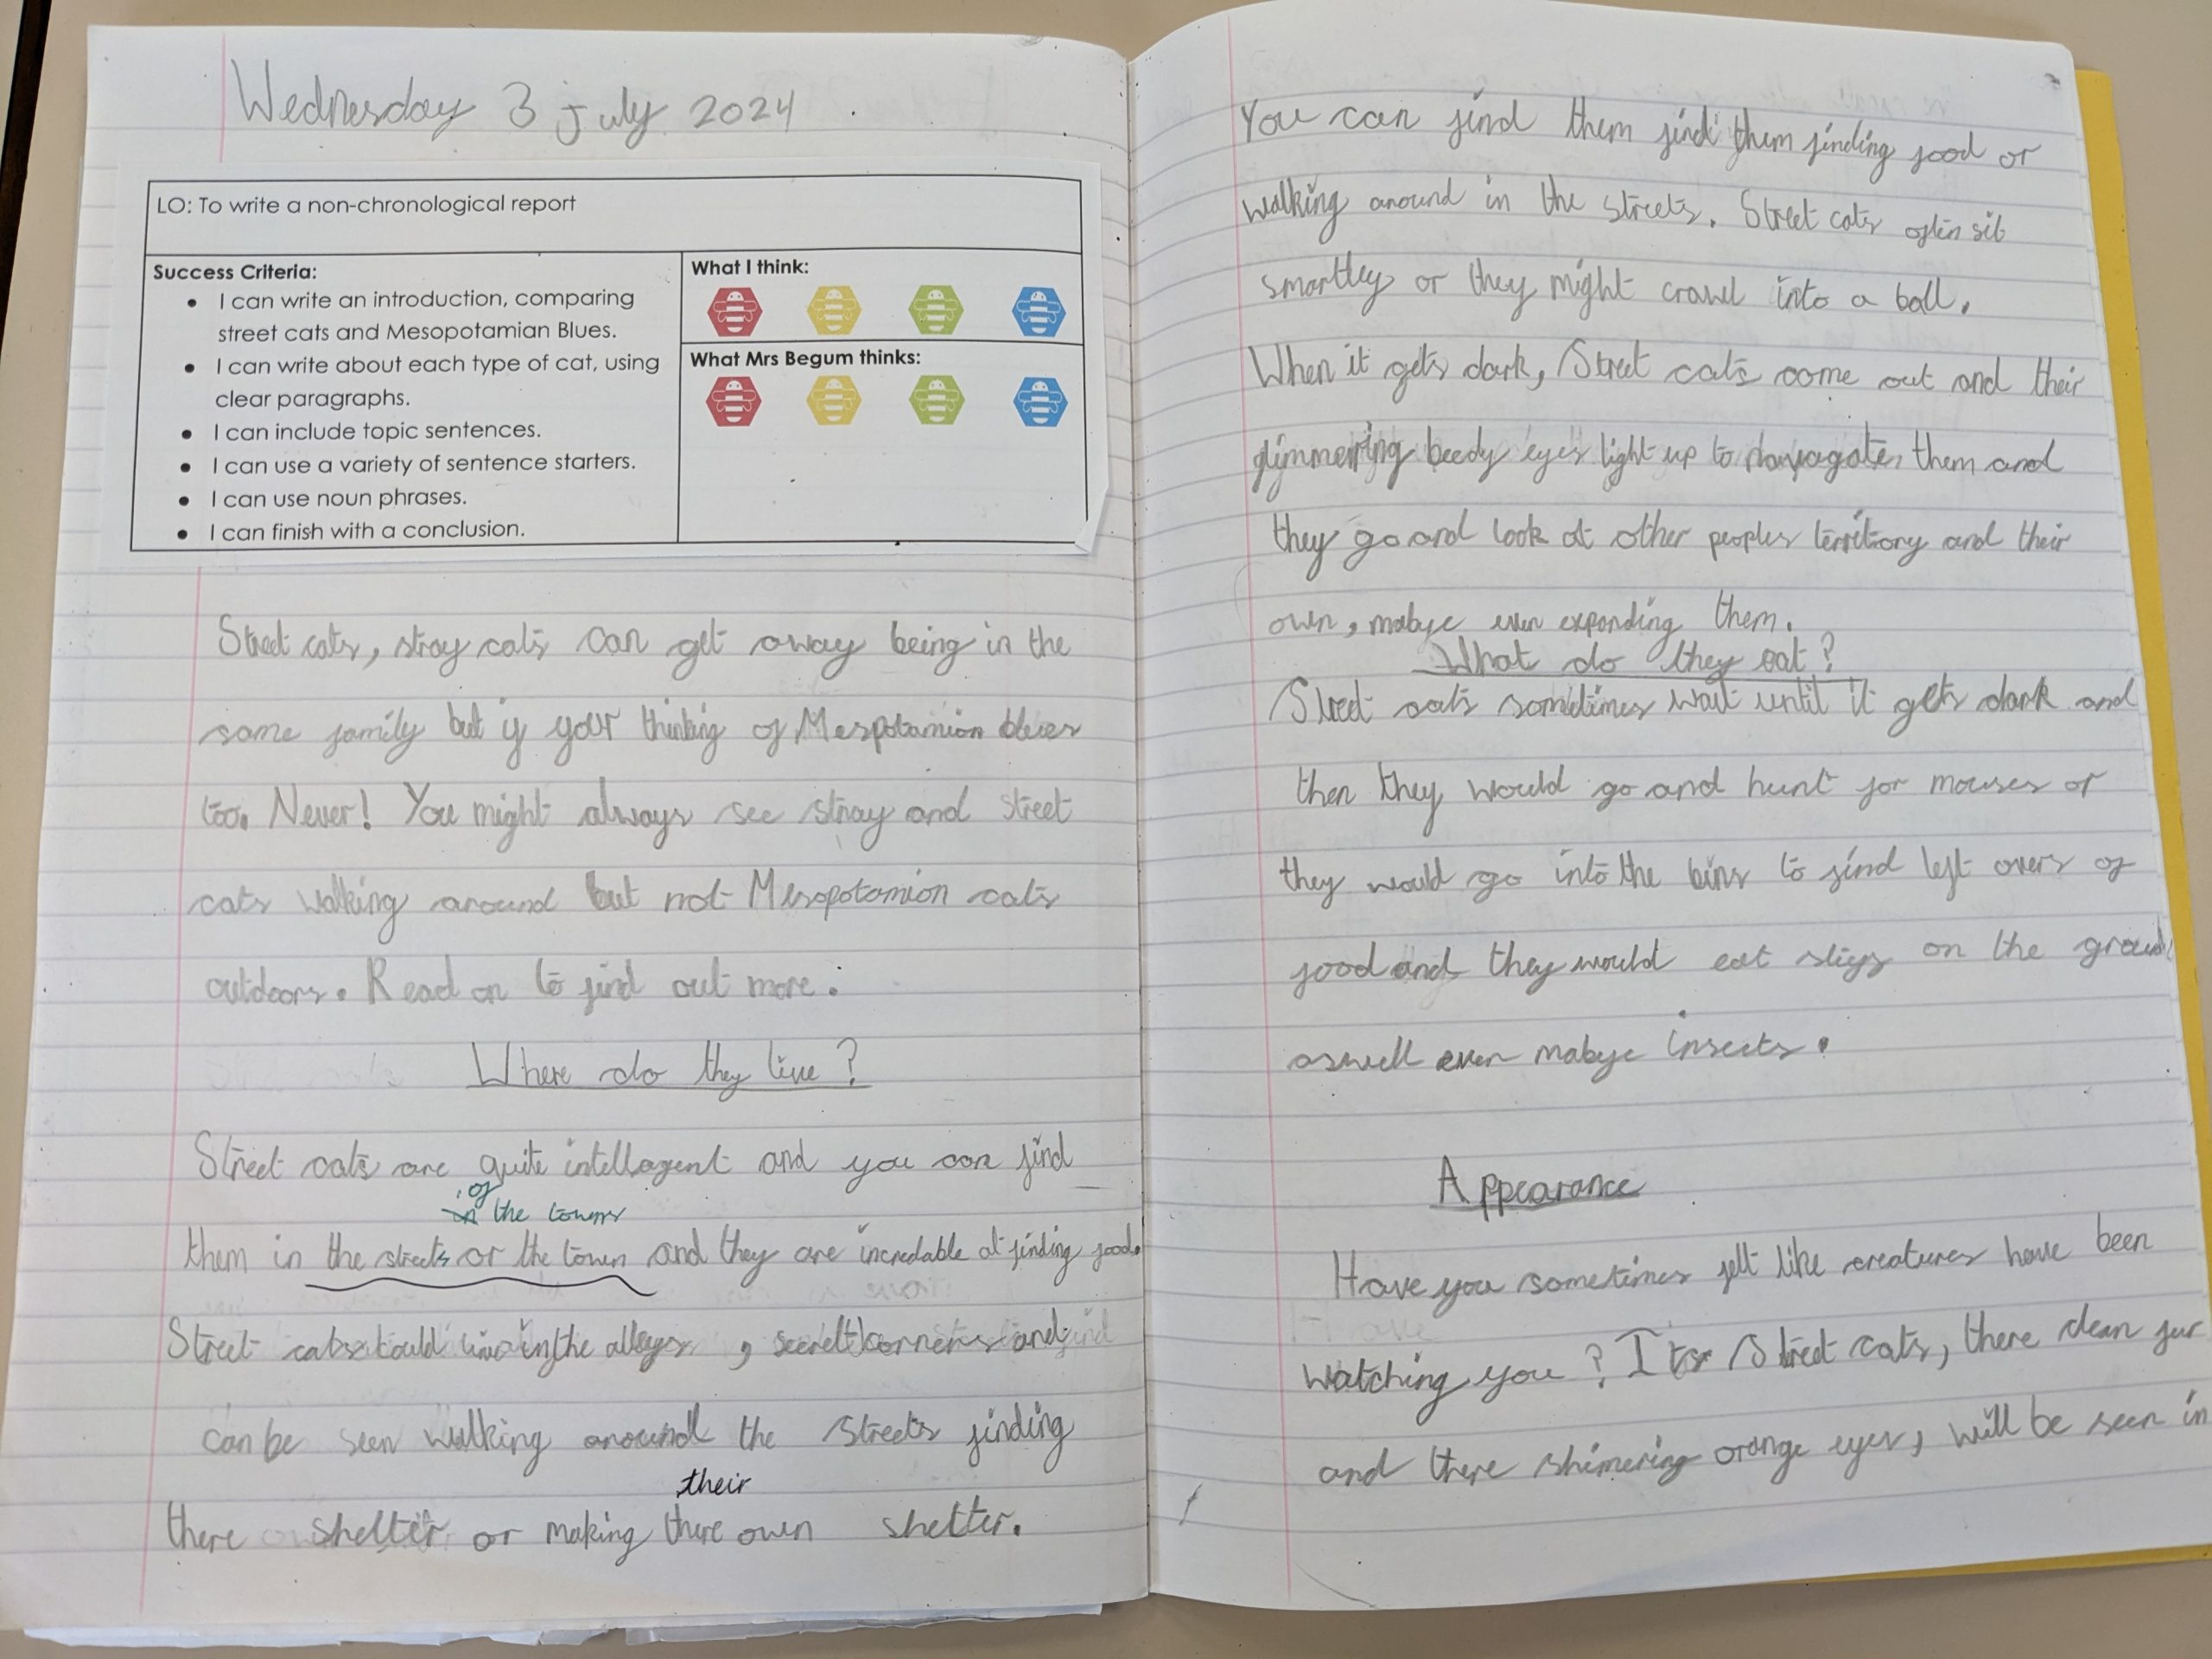 Wednesday 3 july 2024
LO: To write a non-chronological report
Success Criteria:
I can write an introduction, comparing
street cats and Mesopotamian Blues.
I can write about each type of cat, using
clear paragraphs.
I can include topic sentences.
I can use a variety of sentence starters.
I can use noun phrases.
I can finish with a conclusion.
What I think:
What Mrs Begum thinks:
Street cats, stray cats can get away being in the
same family but if your thinking of Mespotamion blues
too. Never! You might always see stray and street
cats walking around but not Mesopotamion cats
outdoors. Read on to find out more.
Where do they live?
Street cats are quite intellagent and you can find
of the towns
them in the streets or the town and they are incredable at finding food.
Street cats could live in the alleys, secret corners and
can be seen walking around the streets finding
their
there shelter or making there own shelter.
You can find them find them finding food or
walking around in the streets. Street cats often sit
smartley or they might crawl into a ball.
When it gets dark, Street cats come out and their
glimmering beedy eyes light up to them and
they go and look at other peoples territiory and their
own, mabye even expanding them.
What do they eat?
Street cats sometimes wait until it gets dark and
then they would go and hunt for mouses or
they would go into the bins to find left overs of
food and they would eat on the ground
aswell even mabye insects.
Appearance
Have you sometimes felt like creatures have been
watching you? Its Street cats, there clean fur
and there shimering orange eyes, will be seen in